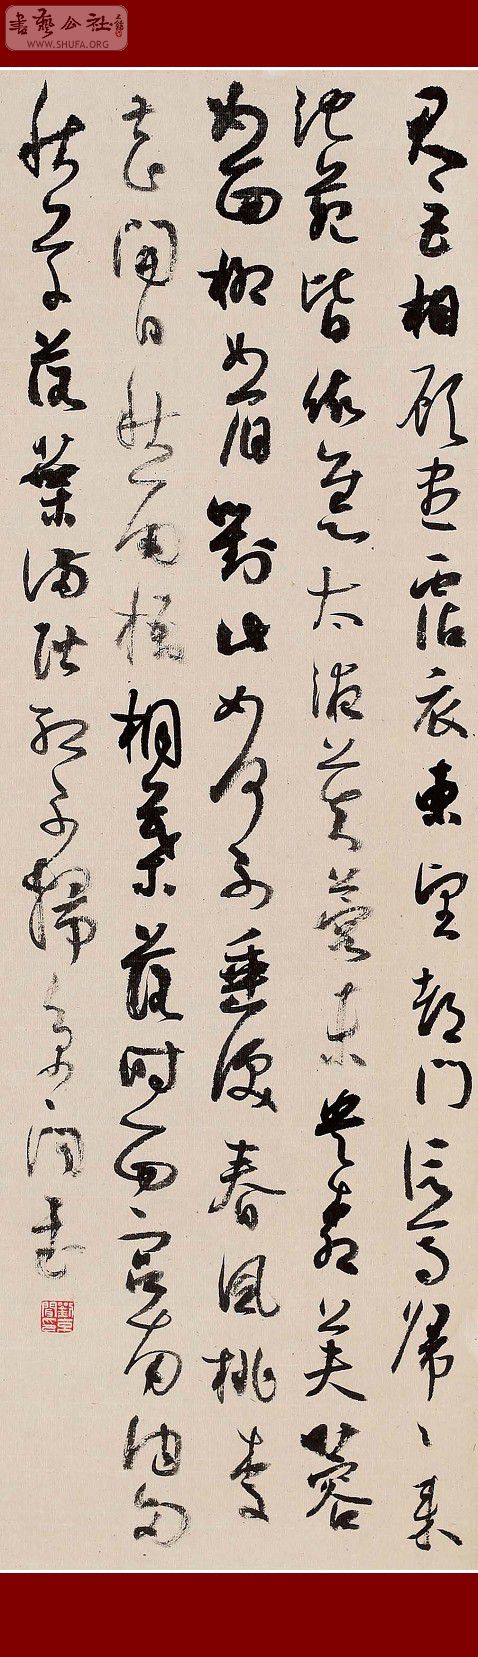 書藝公社
WWW.SHUFA.ORG
君臣相顧盡霑衣東望都門信馬歸〻來
池苑皆依舊太液芙蓉未央柳芙蓉
如面柳如眉對此如何不垂淚春風桃李
花開日秋雨梧桐葉落時西宮南内多
秋草落葉滿階紅不掃 書